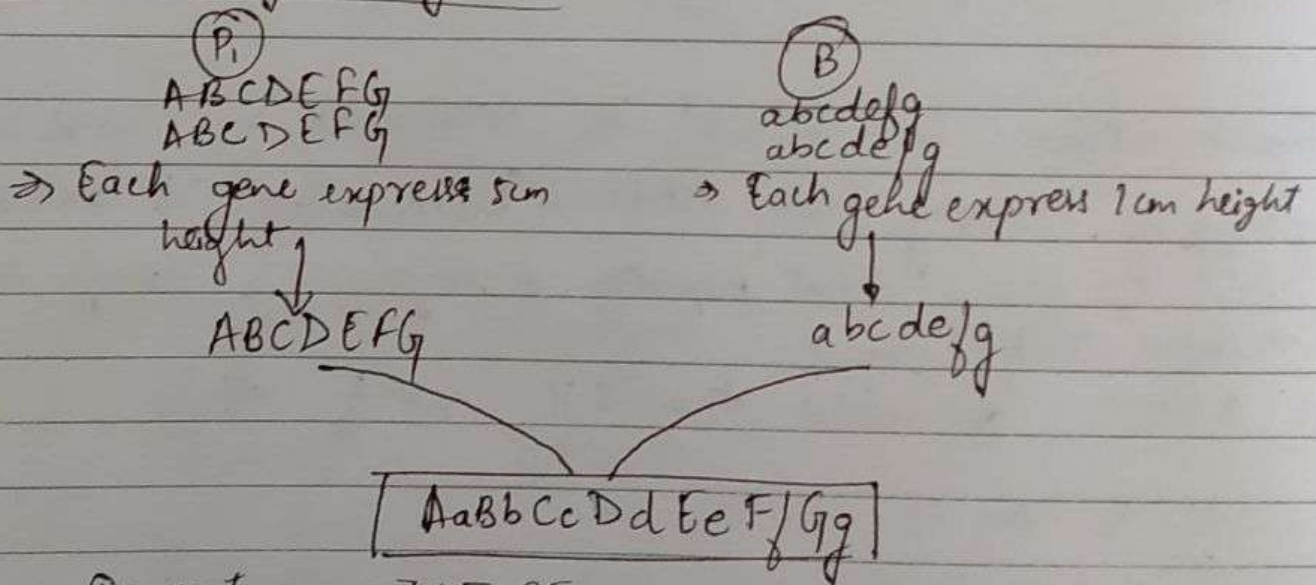 P1
ABCDEFG
ABCDEFG
⇒ Each gene express 5cm
height
ABCDEFG
B
abcdefg
abcdefg
→ Each gene express 1cm height
abcdefg
AaBbCcDdEeFfGg